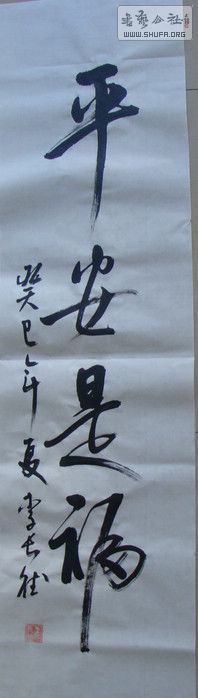 平安是福
癸巳年夏李长胜
书艺公社
WWW.SHUFA.ORG